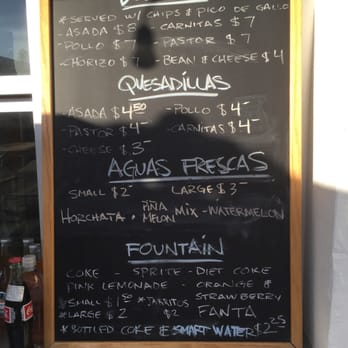 *SERVED W/ CHIPS & PICO DE GALLO
-ASADA $8 -CARNITAS $7
-POLLO $7 -PASTOR $7
-CHORIZO $7 -BEAN & CHEESE $4
QUESADILLAS
-ASADA $4.50 -POLLO $4-
-PASTOR $4- -CARNITAS $4-
-CHEESE $3-
AGUAS FRESCAS
SMALL $2- LARGE $3-
HORCHATA • PIÑA MELON MIX - WATERMELON
FOUNTAIN
COKE - SPRITE - DIET COKE
PINK LEMONADE - ORANGE & STRAWBERRY FANTA
*SMALL $1.50 *JARRITOS $2
*LARGE $2
*BOTTLED COKE & SMART WATER $2.25